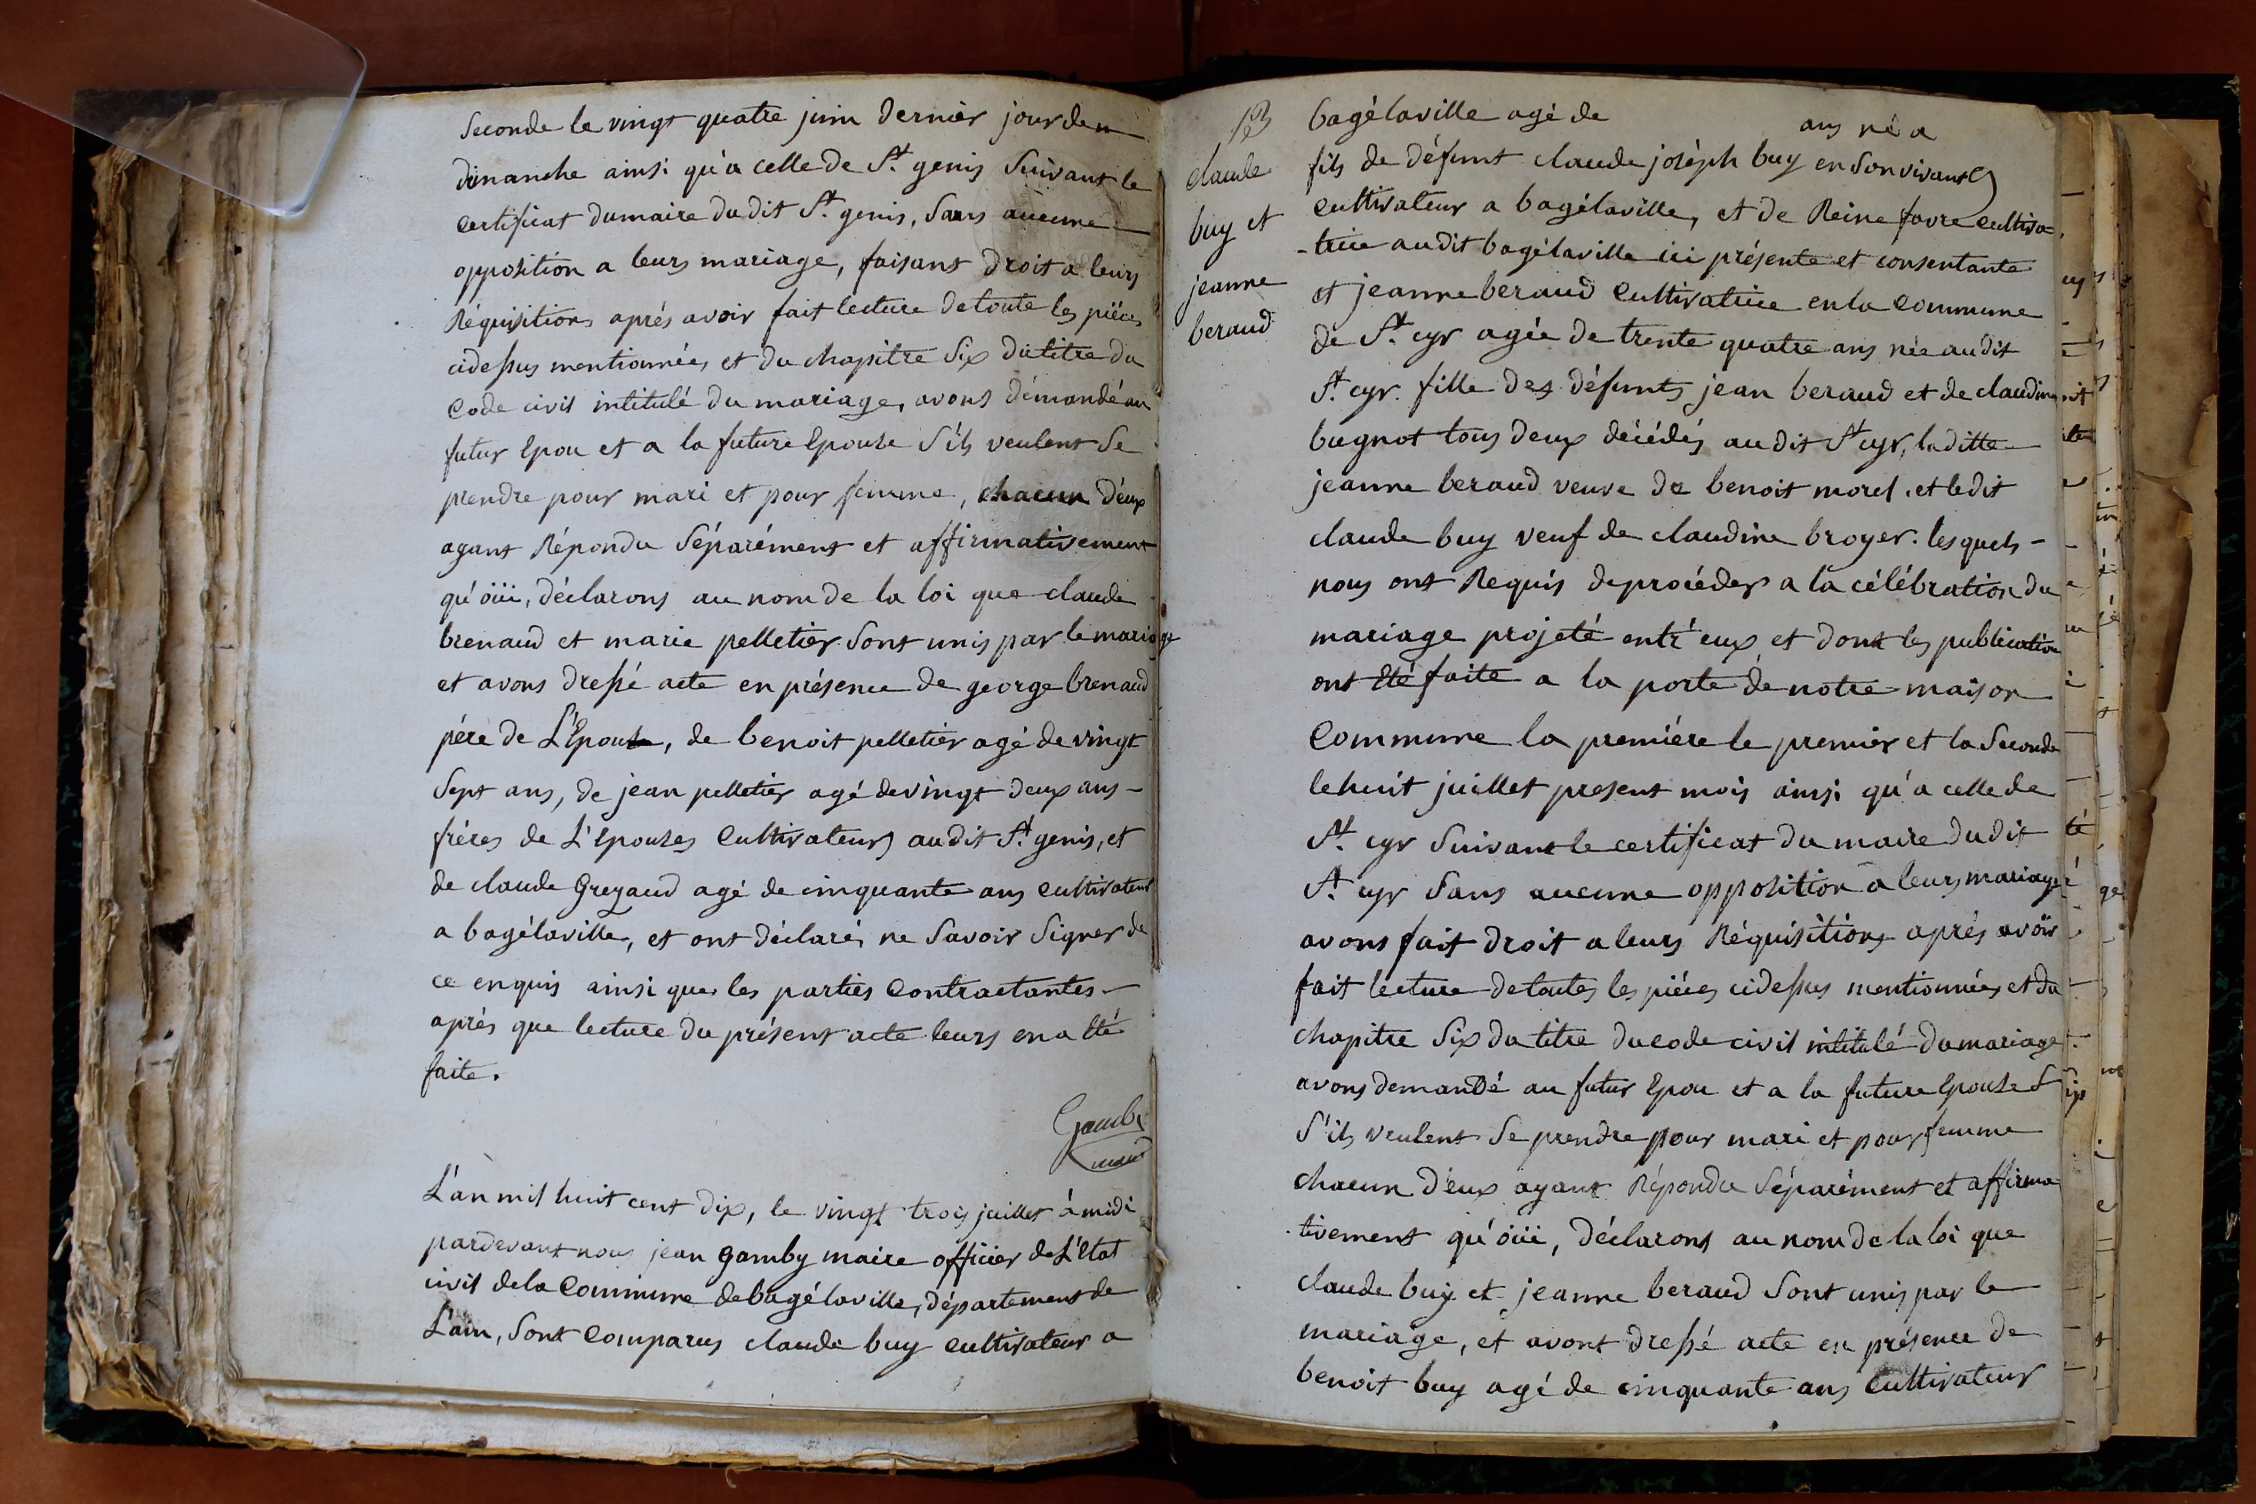 Seconde le vingt quatre juin dernier jour de
dimanche ainsi qu'a celle de St. genis Suivant le
certificat du maire dudit St. genis, Sans aucune
opposition a leurs mariage, faisant droit a leurs
Réquisitions aprés avoir fait lecture de toute les piéces
cidessus mentionnées et du chapitre Six du titre du
Code civil intitulé du mariage, avons démandé au
futur Epou et a la future Epouse S'ils veulent Se
prendre pour mari et pour femme, chacun d'eux
ayant Répondu Séparément et affirmativement
qu'öüi, déclarons au nom de la loi que claude
brenaud et marie pelletier Sont unis par le mariage
et avons dressé acte en présence de george brenaud
pére de L'Epouse, de benoit pelletier agé de vingt
Sept ans, de jean pelletier agé de vingt deux ans –
fréres de L'Epouses Cultivateurs audit St. genis, et
de claude Greyaud agé de cinquante ans cultivateur
a bagélaville, et ont déclarés ne Savoir Signer de
ce enquis ainsi que les parties Contractantes –
aprés que lecture du présent acte leurs en a été
faite.
Gamby
maire
L'an mil huit cent dix, le vingt trois juillet à midi
pardevant nous jean gamby maire officier de L'Etat
civil de la Commune de bagélaville, département de
L'ain, Sont Comparus claude buy cultivateur a
claude
buy et
jeanne
beraud
bagélaville agé de ans né a
fils de défunt claude joséph buy en Son vivant
Cultivateur a bagélaville, et de Reine favre cultiva=
-trice audit bagélaville ici présente et consentante
et jeanne beraud Cultivatrice en la Commune
de St. cyr agée de trente quatre ans née audit
St. cyr. fille des défunts jean beraud et de claudine
bugnot tous deux décédés audit St cyr, laditte
jeanne beraud veuve de benoit morel. et ledit
claude buy veuf de claudine broyer. lesquels –
nous ont Requis de procéder a la célébration du
mariage projeté entr'eux et dont les publication
ont été faite a la porte de notre maison
Commune la premiére le premier et la Seconde
le huit juillet present mois ainsi qu'a celle de
St. cyr Suivant le certificat du maire dudit
St. cyr Sans aucune opposition a leurs mariage
avons fait droit a leurs Réquisitions aprés avöir
fait lécture de toutes les piéces cidessus mentionnées et du
chapitre Six du titre du code civil intitulé du mariage
avons demandé au futur Epou et a la future Epouse S
S'ils veulent Se prendre pour mari et pour femme
chacun d'eux ayant Répondu Séparément et affirma
-tivement qu'öüi, déclarons au nom de la loi que
claude buy et jeanne beraud Sont unis par le
mariage, et avont dressé acte en présence de
benoit buy agé de cinquante ans Cultivateur